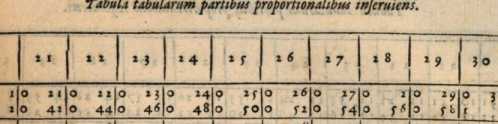 Tabula tabularum partibus proportionalibus inserviens.
21 22 23 24 25 26 27 28 29 30
1 0 21 0 22 0 23 0 24 0 25 0 26 0 27 0 2 0 29 0 3
2 0 42 0 44 0 46 0 48 0 50 0 52 0 54 0 56 0 58 1